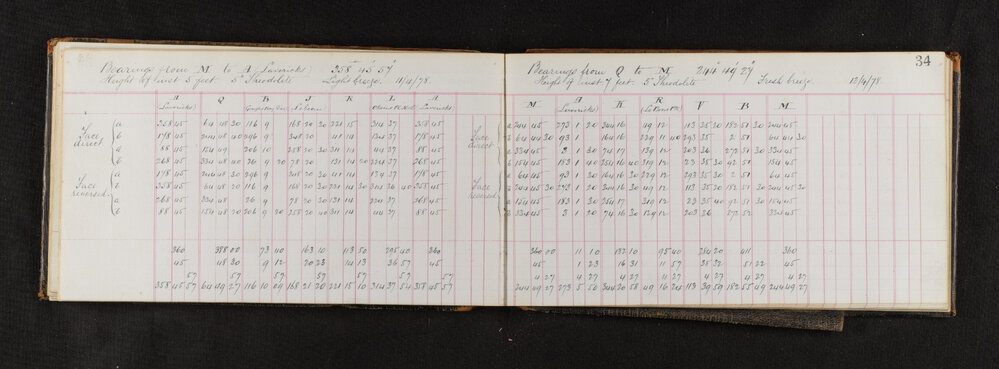 Bearings from M to A (Lavricks) 358° 45' 57"
Height of inst 5 feet 5" Theodolite Light breeze. 11/4/78.
A Q H J K L A
(Lavricks) (Lavricks)
Face direct
a 358 45 64 48 30 116 9 168 20 20 231 15 314 37 358 45
b 178 45 244 48 40 296 9 348 20 41 14 134 37 178 45
a 88 45 154 49 206 10 258 20 30 311 14 44 37 88 45
b 268 45 334 48 40 26 9 20 78 20 131 14 20 224 37 268 45
Face reversed
a 178 45 244 48 30 296 9 348 20 30 41 14 134 37 178 45
b 358 45 64 48 20 116 9 168 20 30 221 14 30 314 36 40 358 45
a 268 45 334 48 26 9 78 20 30 131 14 224 37 268 45
b 88 45 154 48 20 206 9 20 258 20 40 311 14 44 37 88 45
360 388 00 73 40 163 10 113 50 295 40 360
45 48 30 9 12 20 23 14 13 36 57 45
57 57 57 57 57 57 57
358 45 57 64 49 27 116 10 09 168 21 20 221 15 10 314 37 54 358 45 57
34
Bearings from Q to M 244° 49' 27"
Height of inst 7 feet 5" Theodolite Fresh breeze 12/4/78
M A K R V B M
(Lavricks)
Face direct
a 244 45 273 1 20 344 16 49 12 113 35 20 182 51 30 244 45
b 64 44 30 93 1 164 16 229 11 40 293 35 2 51 64 44 30
a 334 45 3 1 30 74 17 139 12 203 36 272 51 30 334 45
b 154 45 183 1 40 254 16 40 319 12 23 35 30 92 51 154 45
Face reversed
a 64 45 93 1 30 164 16 30 229 12 293 35 30 2 51 64 45
b 244 45 30 273 1 20 344 16 30 49 12 113 35 20 182 51 30 244 45 30
a 154 45 183 1 30 254 17 319 12 23 35 40 92 51 30 154 45
b 334 45 3 1 20 74 16 30 129 12 203 36 272 52 334 45
360 00 11 10 132 10 95 40 284 20 411 360
45 1 23 16 31 11 57 35 32 51 22 45
4 27 4 27 4 27 4 27 4 27 4 27
244 49 27 273 5 50 344 20 58 49 16 24 113 39 59 182 55 49 244 49 27